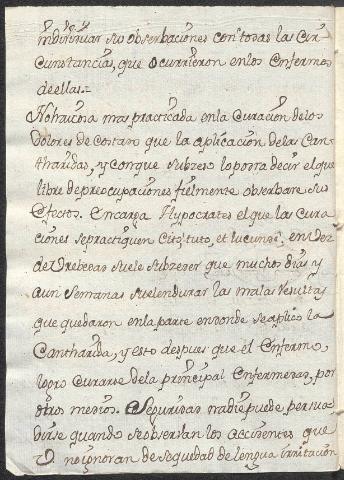 individuar sus obserbaciones con todas las Cir-
cunstancias, que ocurrieron en los Enfermos
de ellas.=
No hai cosa mas practicada en la Curacion de los
Dolores de Costado que la aplicacion de las Can-
tharidas, y con que subzeso lo podra decir el que
libre de preocupaciones fielmente obserbare sus
efectos. Encarga Hypocrates el que las Cura
ciones se practiquen Cito, tuto, et iucunde, en Vez
de Vrebedad suele subzeder que muchos dias y
aun Semanas suelen durar las malas resultas
que quedaron en la parte en donde se aplico la
Cantharida, y esto despues que el Enfermo
logro Curarse de la principal Enfermedad, por
otros medios. Seguridad nadie puede persua
dirse quando se obserban los accidentes que
no ignoran de sequedad de lengua irritacion